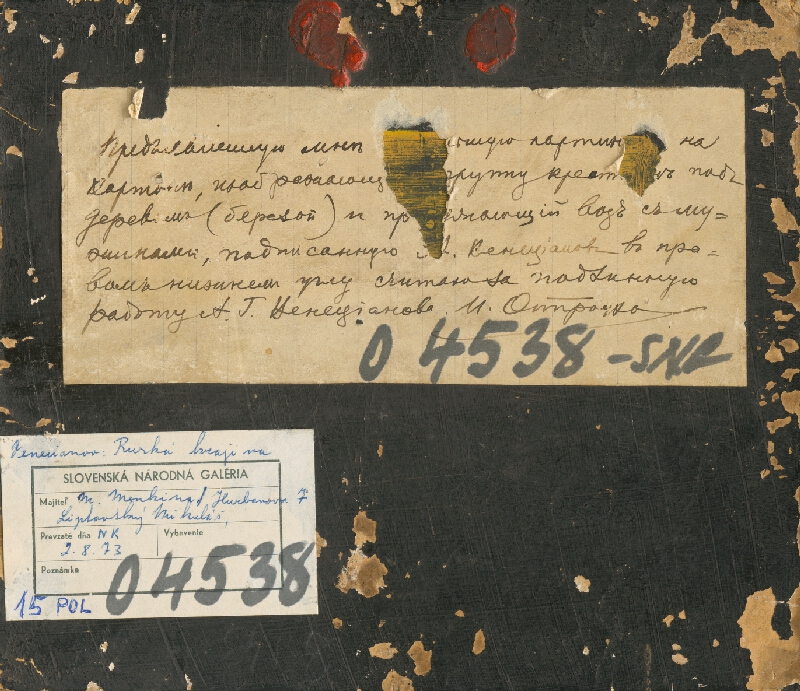 Предъявленную мнѣ ющую картину на
картонѣ, изображающ группу крест нъ подъ
деревомъ (березой) и пр жающій возъ съ му=
жиками, подписанную А. Венеціановъ въ пра=
вомъ нижнемъ углу считаю за подлинную
работу А. Г. Венеціанова. И. Остроухо
04538-SNR
Venecianov: Ruská krajina
SLOVENSKÁ NÁRODNÁ GALÉRIA
Majiteľ M. Hurbanova 7
Liptovský Mikuláš,
Prevzaté dňa NK Vybavenie
2.8.73
Poznámka
04538
15 POL